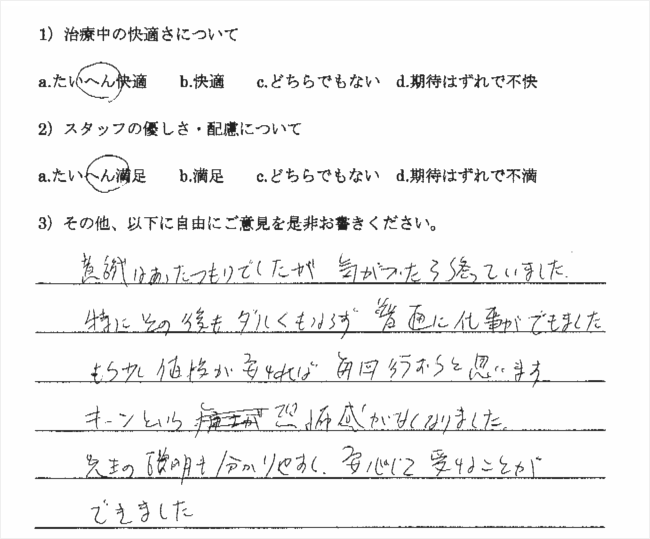 1）治療中の快適さについて
a.たいへん快適　b.快適　c.どちらでもない　d.期待はずれで不快
2）スタッフの優しさ・配慮について
a.たいへん満足　b.満足　c.どちらでもない　d.期待はずれで不満
3）その他、以下に自由にご意見を是非お書きください。
意識はあったつもりでしたが 気がついたら終っていました.
特にその後もダルくもならず 普通に仕事ができました
もう少し値段が安ければ毎回行おうと思います
キーンという 恐怖感がなくなりました.
先生の説明も分かりやすく、安心して受けることが
できました